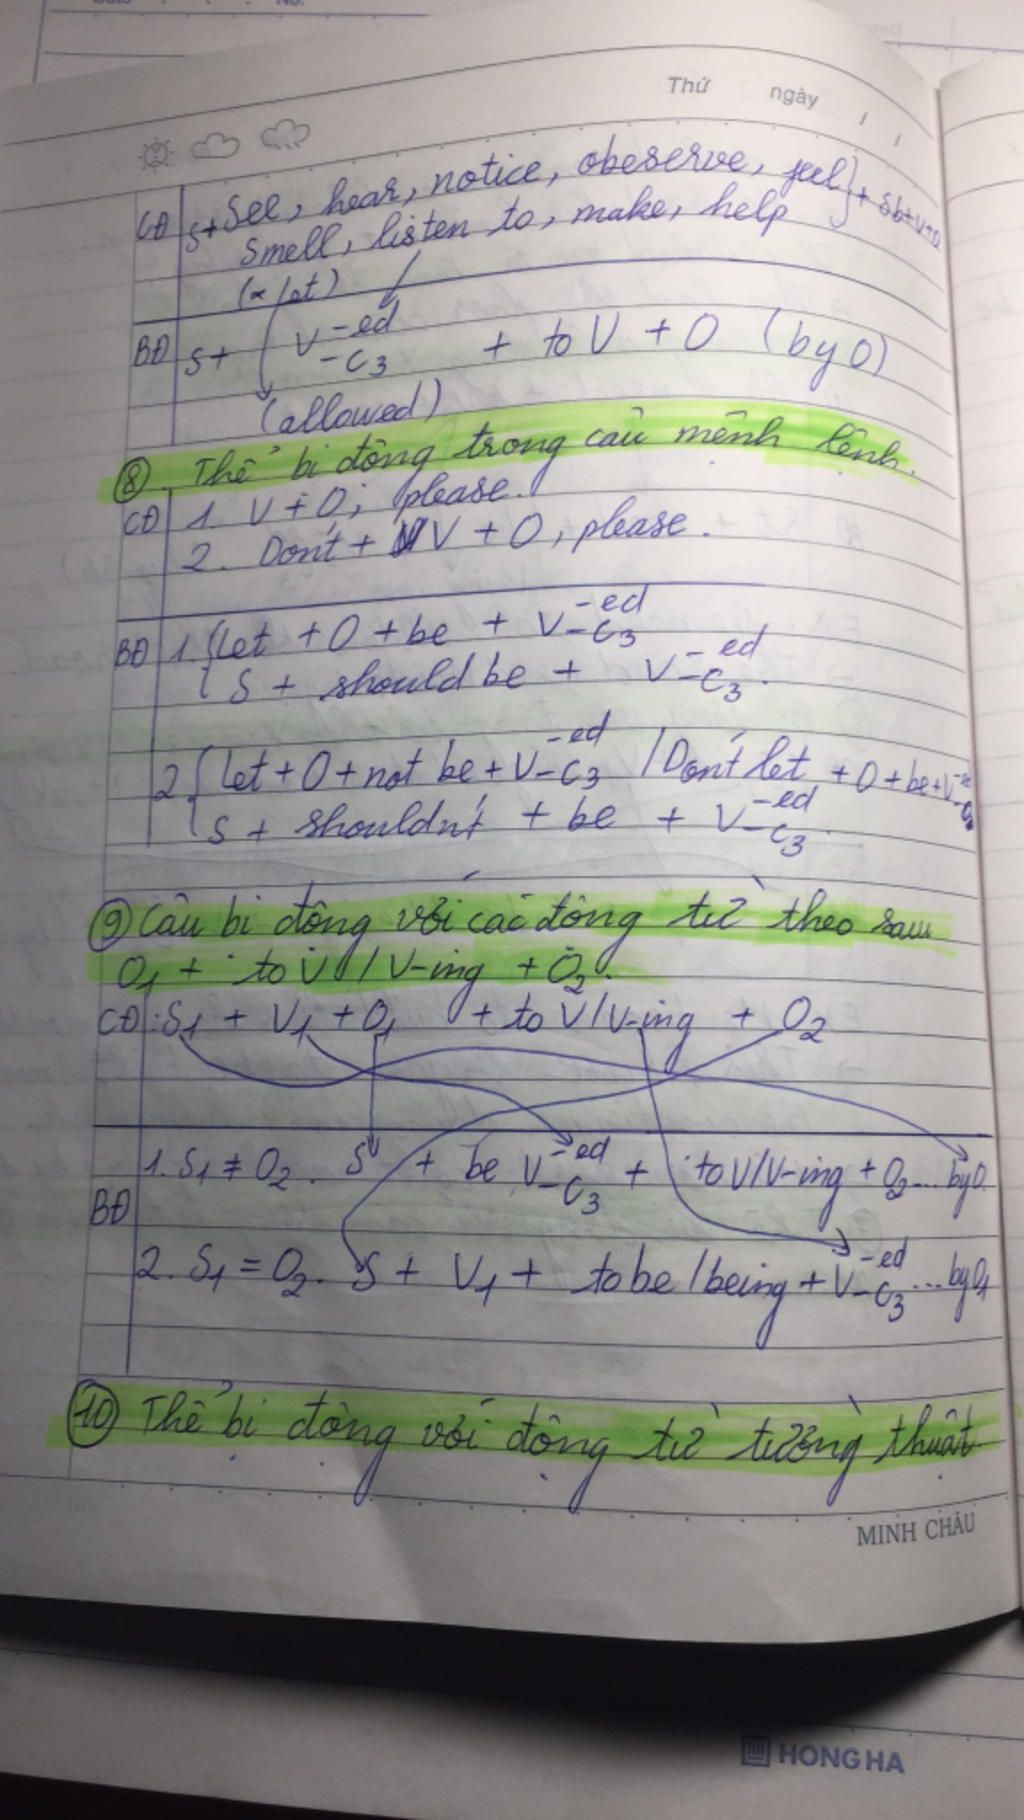 Thứ ngày / /
CĐ S+ See, hear, notice, obeserve, feel } + Sb+V+O
Smell, listen to, make, help
(x let)
BĐ S+ V-ed/-C3 + to V + O (by O)
(allowed)
⑧. Thể bị động trong câu mệnh lệnh.
CĐ 1. V + O, please.
2. Don't + V + O, please.
BĐ 1. { Let + O + be + V-ed/-C3
S + should be + V-ed/-C3.
2. { Let + O + not be + V-ed/-C3 / Don't let + O + be + V-ed/-C3
S + shouldn't + be + V-ed/-C3.
⑨ Câu bị động với các động từ theo sau
O1 + to V / V-ing + O2.
CĐ: S1 + V1 + O1 + to V/V-ing + O2
1. S1 ≠ O2. S + be V-ed/-C3 + to V/V-ing + O2... by O.
BĐ
2. S1 = O2. S + V1 + to be / being + V-ed/-C3 ... by O1
⑩ Thể bị động với động từ tường thuật
MINH CHÂU
HONG HA